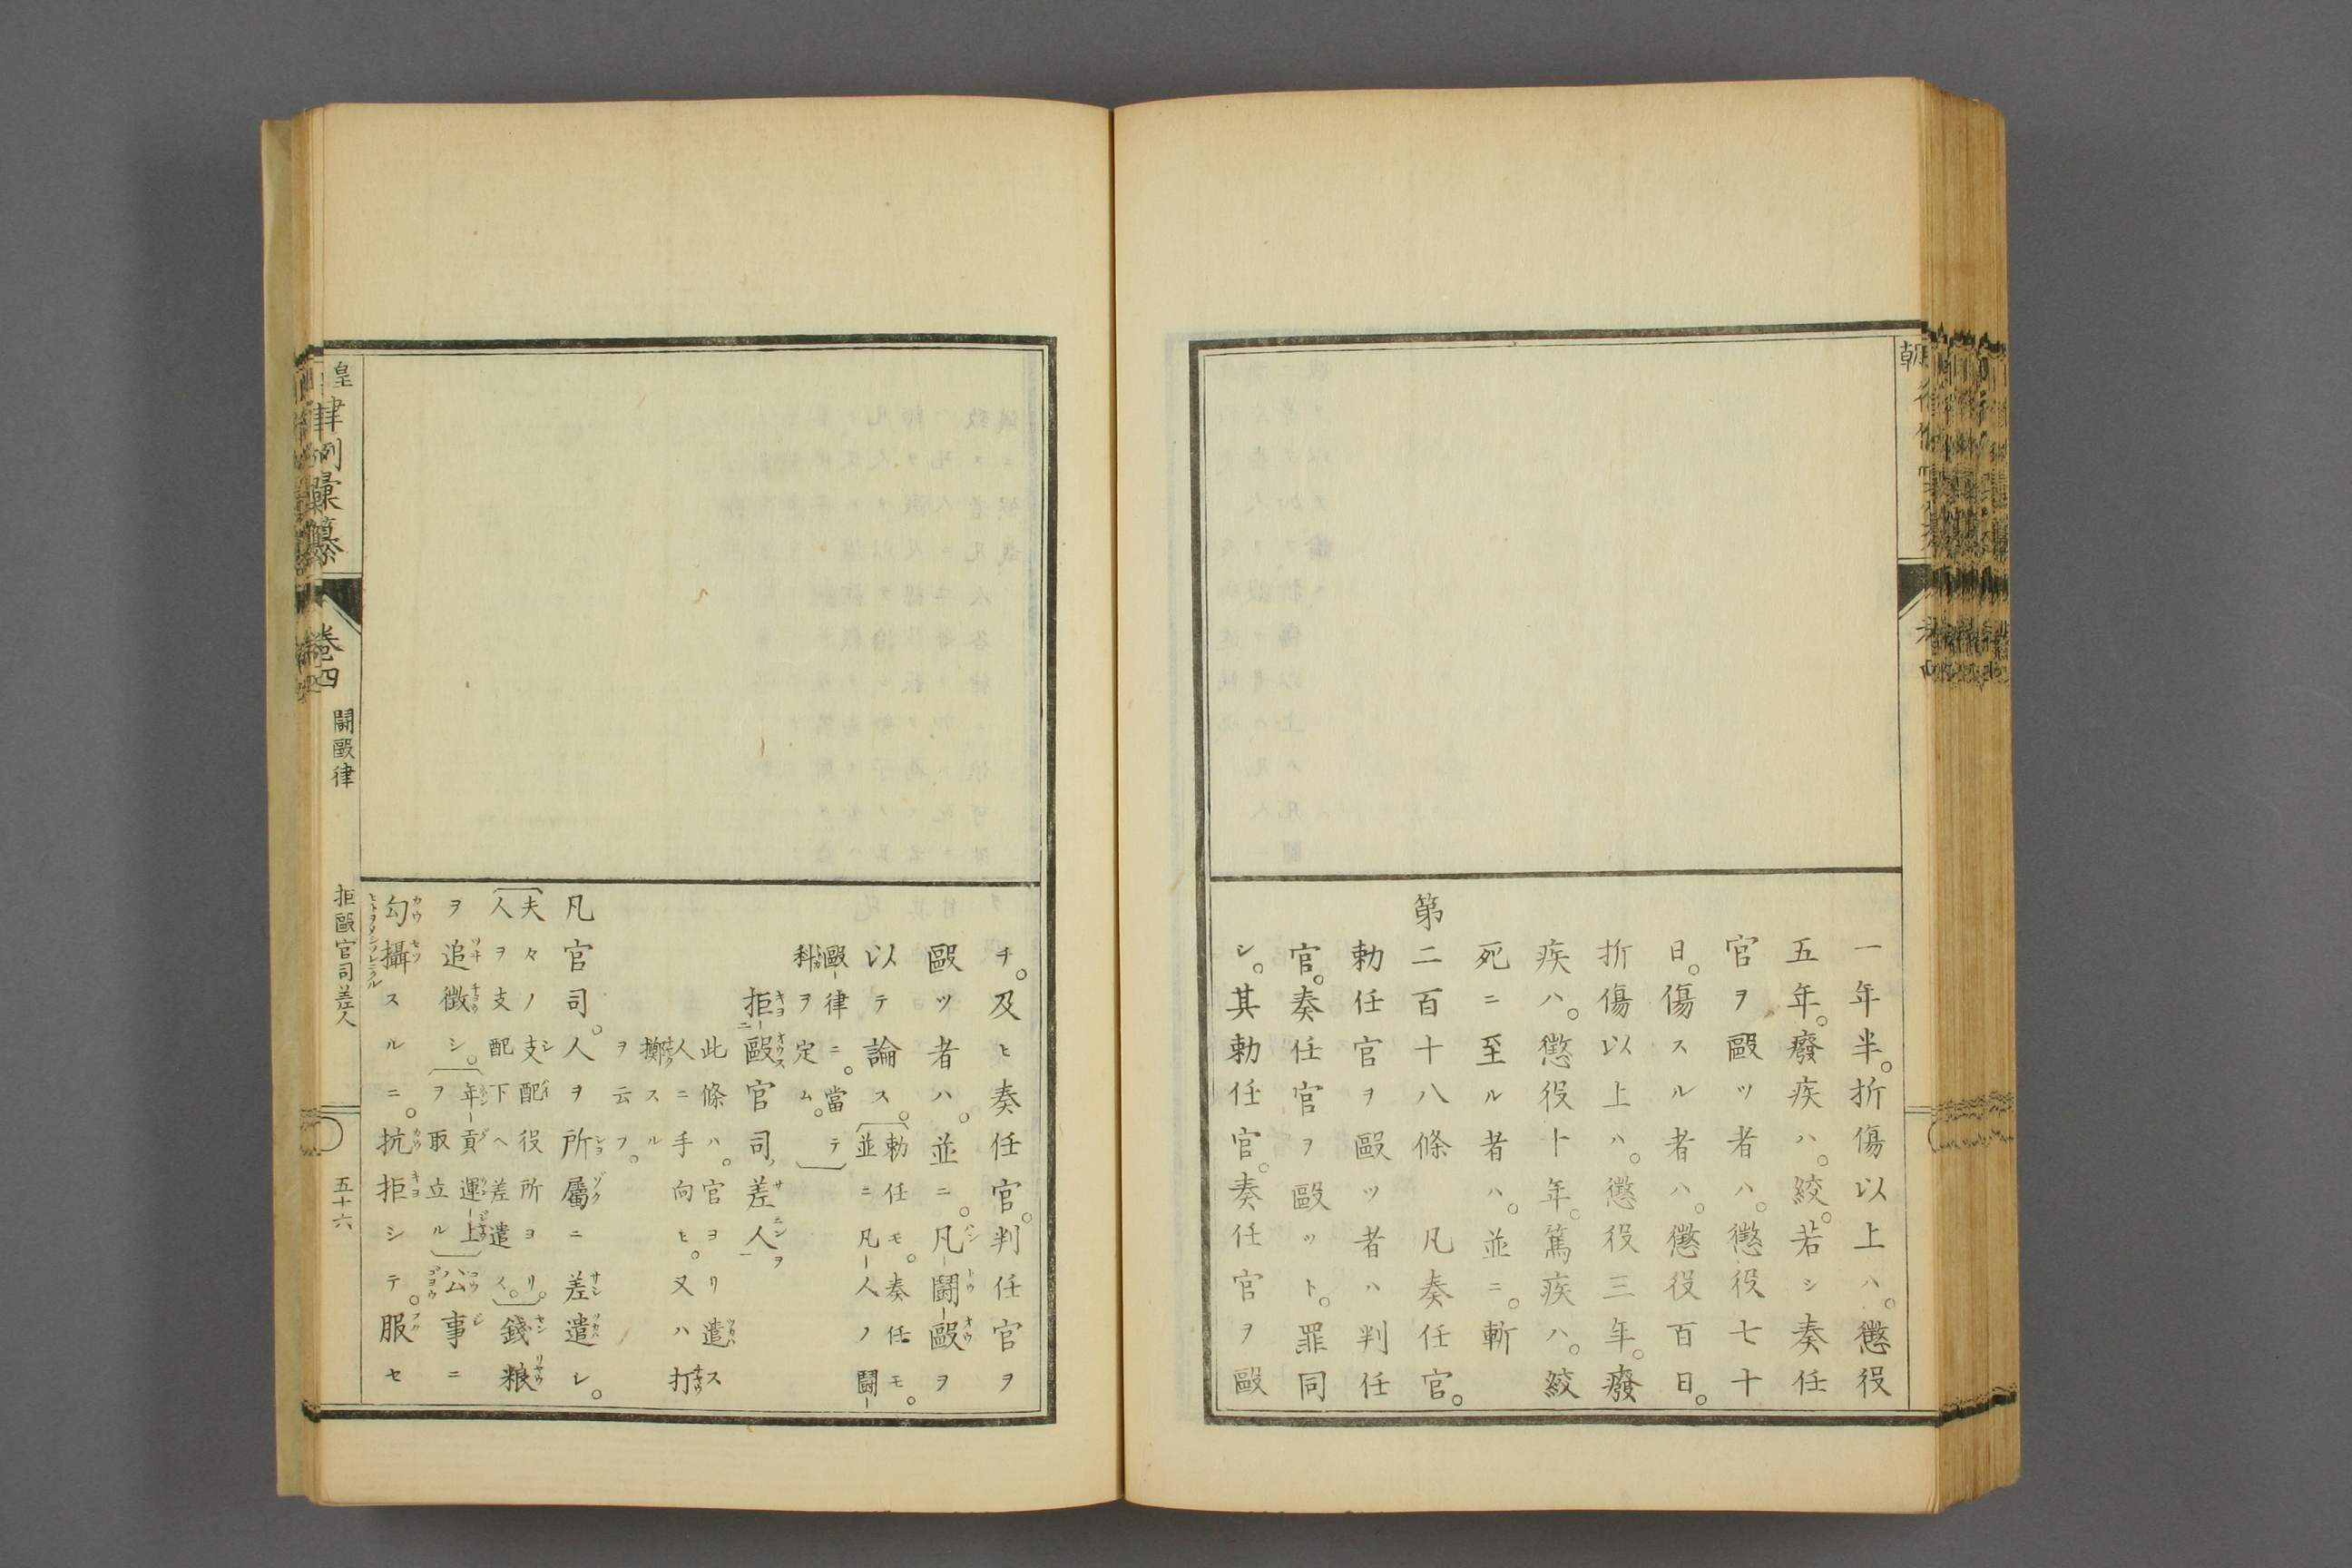 一年半。折傷以上ハ。懲役
五年。癈疾ハ。絞。若シ奏任
官ヲ毆ツ者ハ。懲役七十
日。傷スル者ハ。懲役百日。
折傷以上ハ。懲役三年。癈
疾ハ。懲役十年。篤疾ハ。絞
死ニ至ル者ハ。並ニ。斬
第二百十八條　凡奏任官。
勅任官ヲ毆ツ者ハ判任
官。奏任官ヲ毆ツト。罪同
シ。其勅任官。奏任官ヲ毆
チ。及ヒ奏任官。判任官ヲ
毆ツ者ハ。並ニ。凡鬪毆ヲ
以テ論ス。
勅任モ。奏任モ。
並ニ凡人ノ鬪
毆律ニ。當テ
科ヲ定ム。
拒毆官司差人
此條ハ。官ヨリ遣ス
人ニ手向ヒ。又ハ打
擲スル
ヲ云フ。
凡官司。人ヲ所屬ニ差遣シ。
夫々ノ支配役所ヨリ。
人ヲ支配下ヘ差遣イ。
錢粮
ヲ追徵シ。
年貢運上
ヲ取立ル
公事ニ
勾攝スルニ。抗拒シテ。服セ
皇律例彙纂
卷四
鬪毆律
拒毆官司差人
五十六